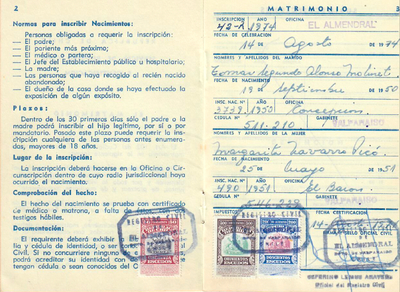 2
Normas para inscribir Nacimientos:
Personas obligadas a requerir la inscripción:
— El padre;
— El pariente más próximo;
— El médico o partera;
— El Jefe del Establecimiento público u hospitalario;
— La madre;
— Las personas que haya recogido al recién nacido abandonado;
— El dueño de la casa donde se haya efectuado la exposición de algún expósito.
Plazos:
Dentro de los 30 primeros días sólo el padre o la
madre podrá inscribir al hijo legítimo, por sí o por
mandatario. Pasado este plazo puede requerir la ins-
cripción cualquiera de las personas antes enumera-
das, mayores de 18 años.
Lugar de la inscripción:
La inscripción deberá hacerse en la Oficina o Cir-
cunscripción dentro de cuyo territorio jurisdiccional haya
ocurrido el nacimiento.
Comprobación del hecho:
El hecho del nacimiento se prueba con certificado
de médico o matrona, a falta de
testigos hábiles.
Documentación:
El requirente deberá exhibir
y cédula de identidad, o
Civil. Si no concurriere ninguno
podrá acreditar su identidad
tengan cédula o sean conocidos del
MATRIMONIO
3
INSCRIPCION AÑO OFICINA
42-R 1974 EL ALMENDRAL
FECHA DE CELEBRACION
14 de Agosto de 1974
NOMBRES Y APELLIDOS DEL MARIDO
Tomas Segundo Alonso
FECHA DE NACIMIENTO
19 de Septiembre de 1950
INSC. NAC. Nº AÑO OFICINA
1950 Concepción
CEDULA Nº
NOMBRES Y APELLIDOS DE LA MUJER
Margarita Navarro Picó
FECHA DE NACIMIENTO
25 de Mayo de 1951
INSC. NAC. Nº AÑO OFICINA
490 1951 El Baron
CEDULA Nº
IMPUESTOS
FECHA CERTIFICACION
REGISTRO CIVIL
EL ALMENDRAL
Oficial del Registro Civil